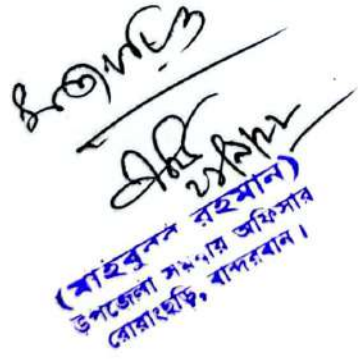 সত্যায়িত
(মাহবুবর রহমান)
উপজেলা সমবায় অফিসার
রোয়াংছড়ি, বান্দরবান।